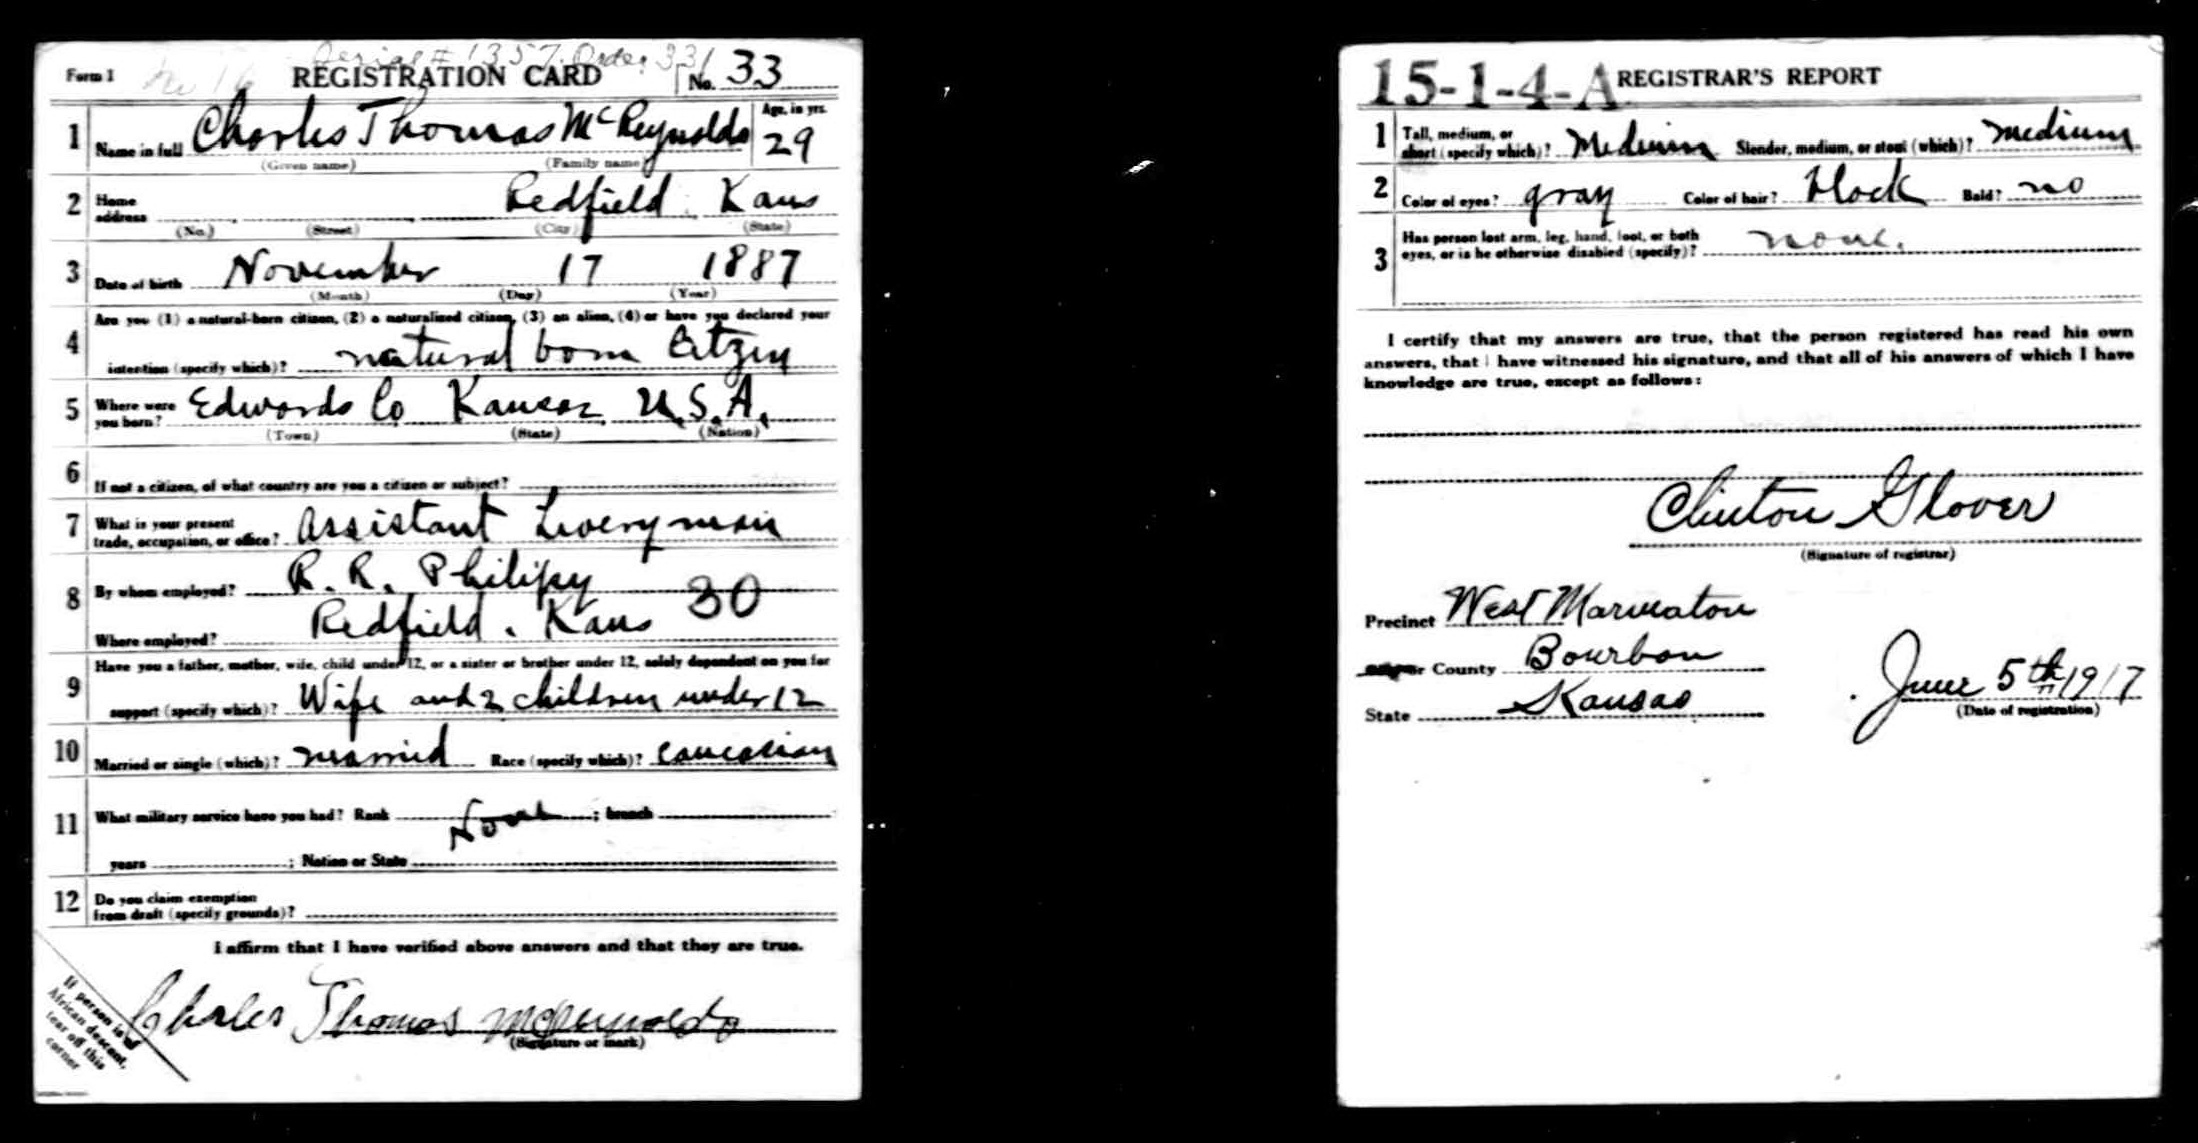 Serial # 1357 Order 331
Form 1 REGISTRATION CARD No. 33
1 Name in full Charles Thomas McReynolds Age, in yrs. 29
(Given name) (Family name)
2 Home address Redfield Kans
(No.) (Street) (City) (State)
3 Date of birth November 17 1887
(Month) (Day) (Year)
4 Are you (1) a natural-born citizen, (2) a naturalized citizen, (3) an alien, (4) or have you declared your
intention (specify which)? natural born Citzen
5 Where were you born? Edwards Co Kansas U.S.A.
(Town) (State) (Nation)
6 If not a citizen, of what country are you a citizen or subject?
7 What is your present
trade, occupation, or office? Assistant Liveryman
8 By whom employed? R. R. Philipy
Where employed? Redfield. Kans 30
9 Have you a father, mother, wife, child under 12, or a sister or brother under 12, solely dependent on you for
support (specify which)? Wife and 2 children under 12
10 Married or single (which)? married Race (specify which)? Caucasian
11 What military service have you had? Rank None ; branch
years ; Nation or State
12 Do you claim exemption
from draft (specify grounds)?
I affirm that I have verified above answers and that they are true.
Charles Thomas McReynolds
(Signature or mark)
If person is
African descent,
tear off this
corner
15-1-4-A REGISTRAR'S REPORT
1 Tall, medium, or
short (specify which)? Medium Slender, medium, or stout (which)? medium
2 Color of eyes? gray Color of hair? black Bald? no
3 Has person lost arm, leg, hand, foot, or both
eyes, or is he otherwise disabled (specify)? none.
I certify that my answers are true, that the person registered has read his own
answers, that I have witnessed his signature, and that all of his answers of which I have
knowledge are true, except as follows:
Clinton Glover
(Signature of registrar)
Precinct West Marmaton
or County Bourbon
State Kansas June 5th 1917
(Date of registration)